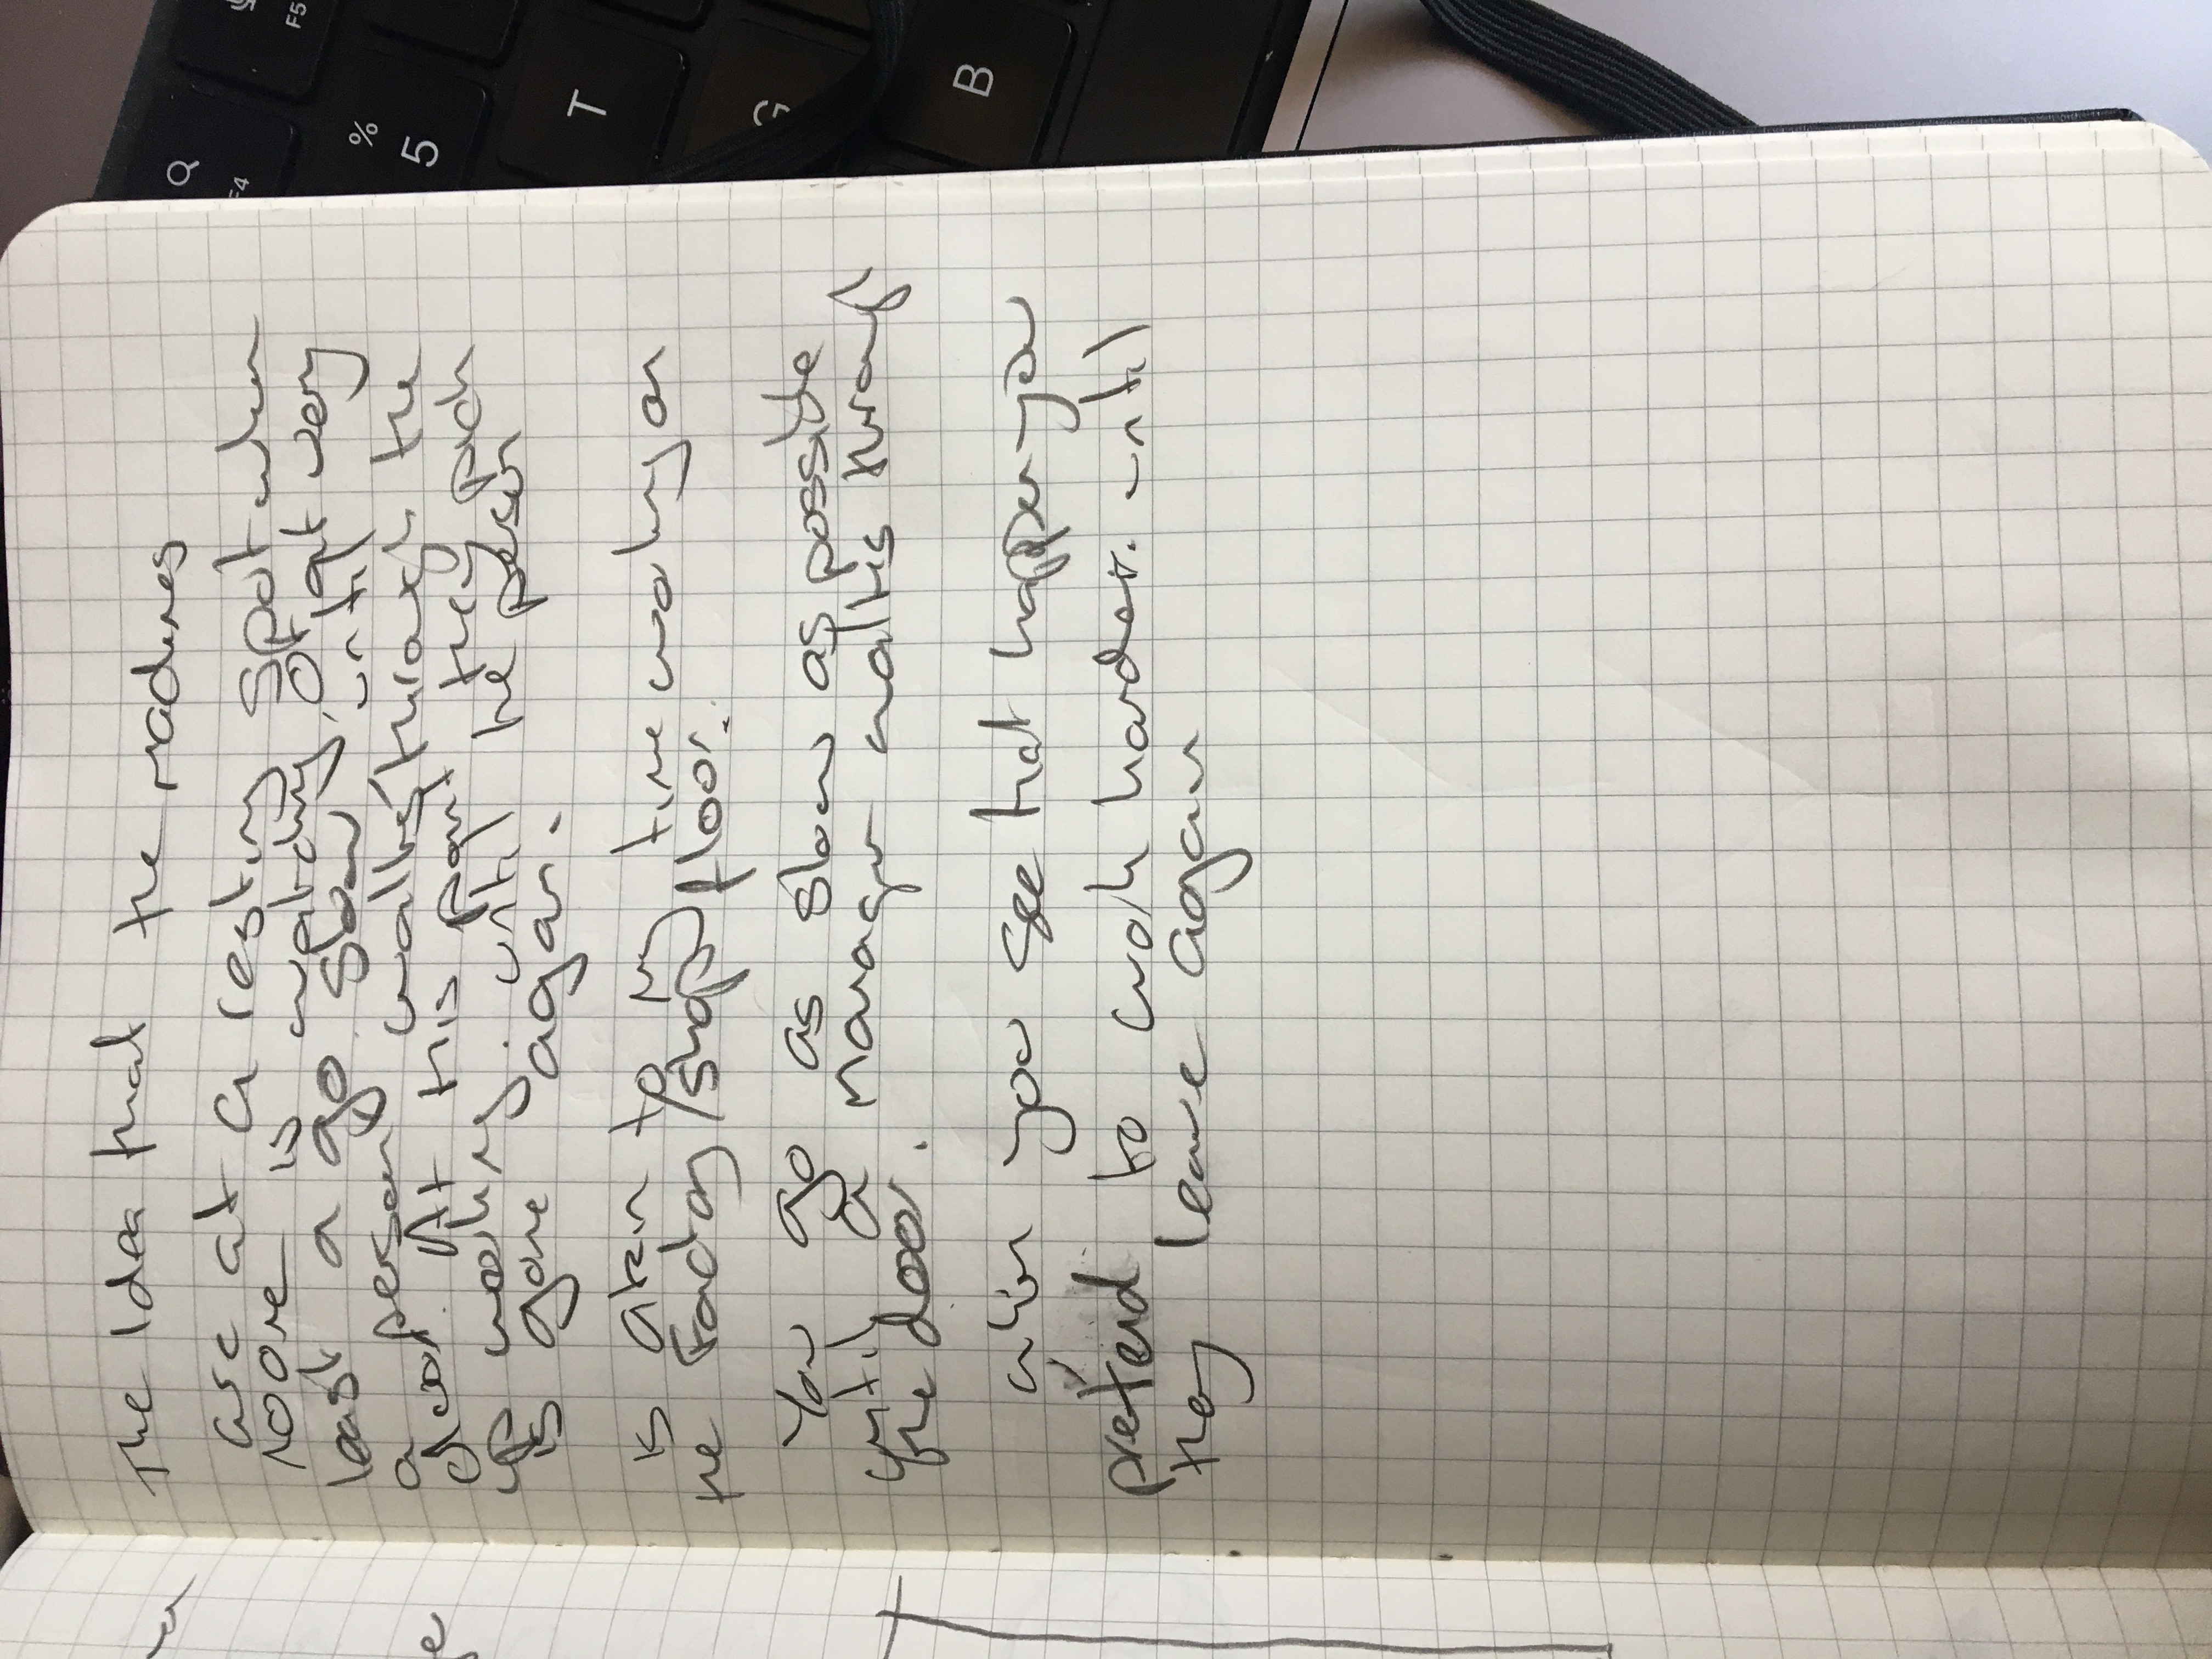 The Idea that the machines
are at a resting spot when
noone is watching, Or at very
least a go slow, until
a person walks through the
door. At this point they pick
up working. until the person
is gone again.
is akin to my time working on
the Factory/shop floor.
You go as slow as possible
until a Manager walks through
the door.
when you see that happen you
pretend to work harder. until
they leave again
Q
F4
F5
%
5
T
G
B